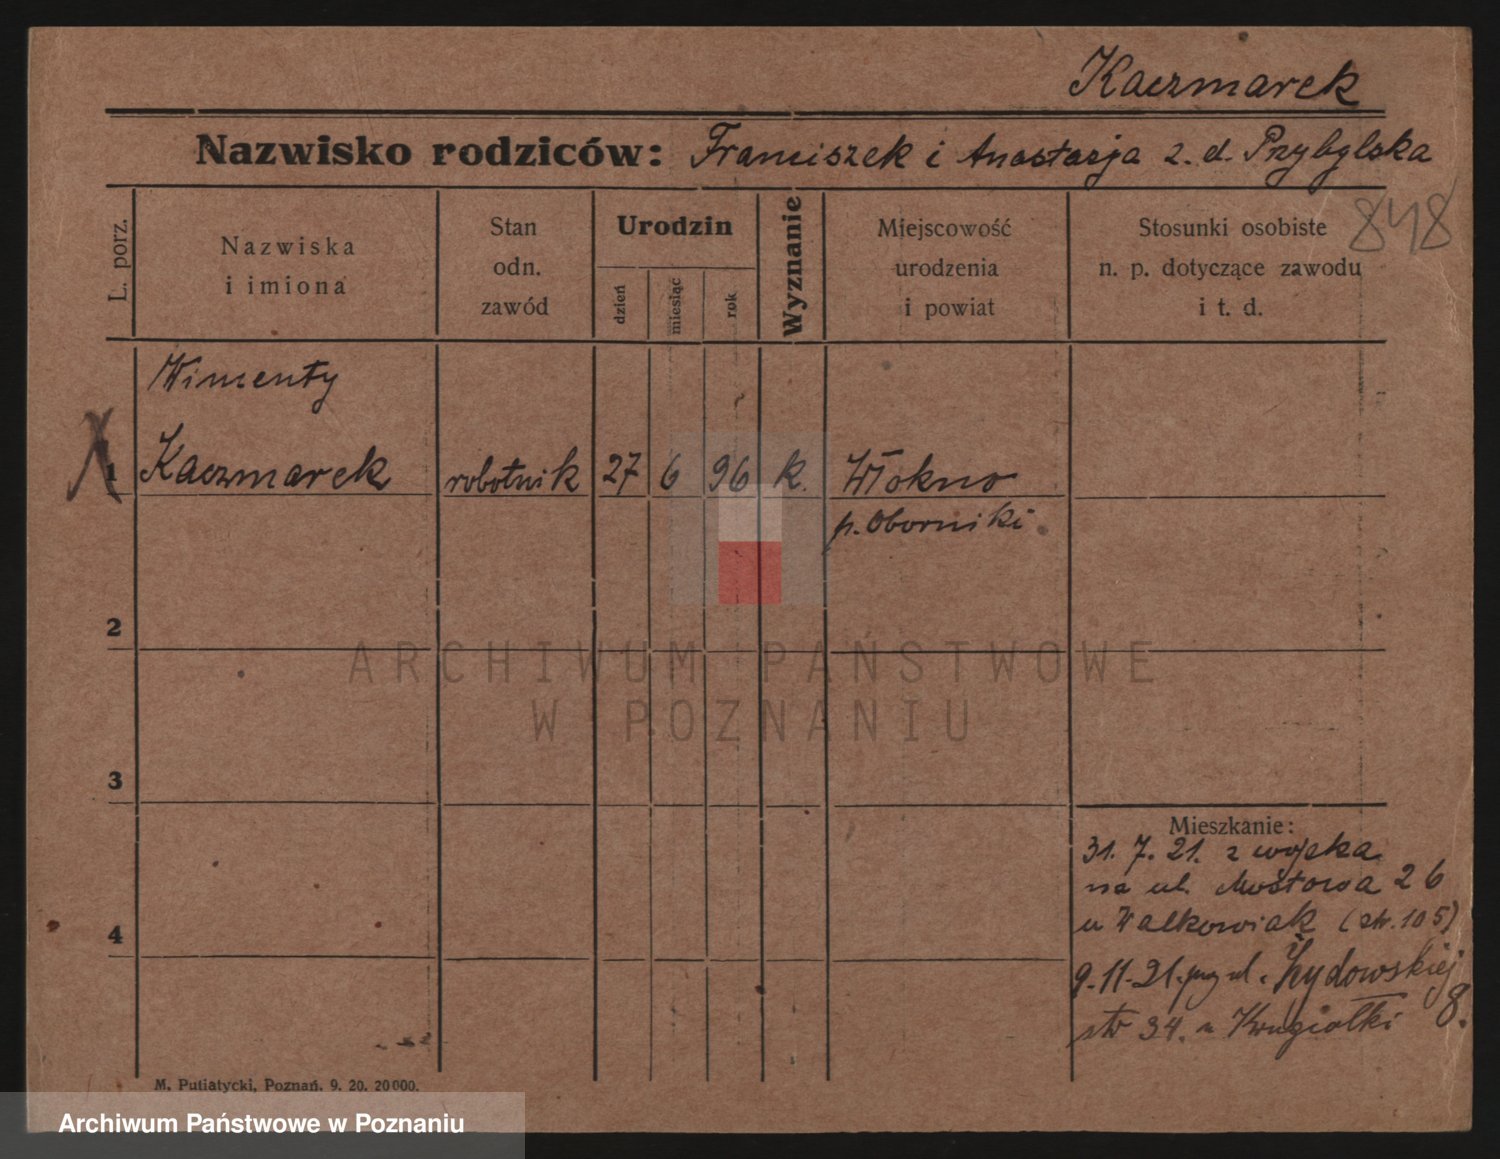 Kaczmarek
Nazwisko rodziców: Franciszek i Anastazja z. d. Przybylska
848
L. porz.
Nazwiska
i imiona
Stan
odn.
zawód
Urodzin
dzień
miesiąc
rok
Wyznanie
Miejscowość
urodzenia
i powiat
Stosunki osobiste
n. p. dotyczące zawodu
i t. d.
Wincenty
1 Kaczmarek robotnik 27 6 96 k. Włókno
p. Oborniki
2
3
4
Mieszkanie:
31. 7. 21. z wojska
na ul. Mostowa 26
u Walkowiak (str. 105)
9.-11.-21. przy ul. Żydowskiej
str 34. u 8.
M. Putiatycki, Poznań. 9. 20. 20000.
ARCHIWUM PAŃSTWOWE
W POZNANIU
Archiwum Państwowe w Poznaniu